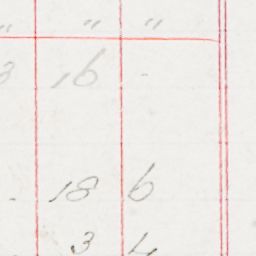 " " "
3 16 -
- 18 6
3 4